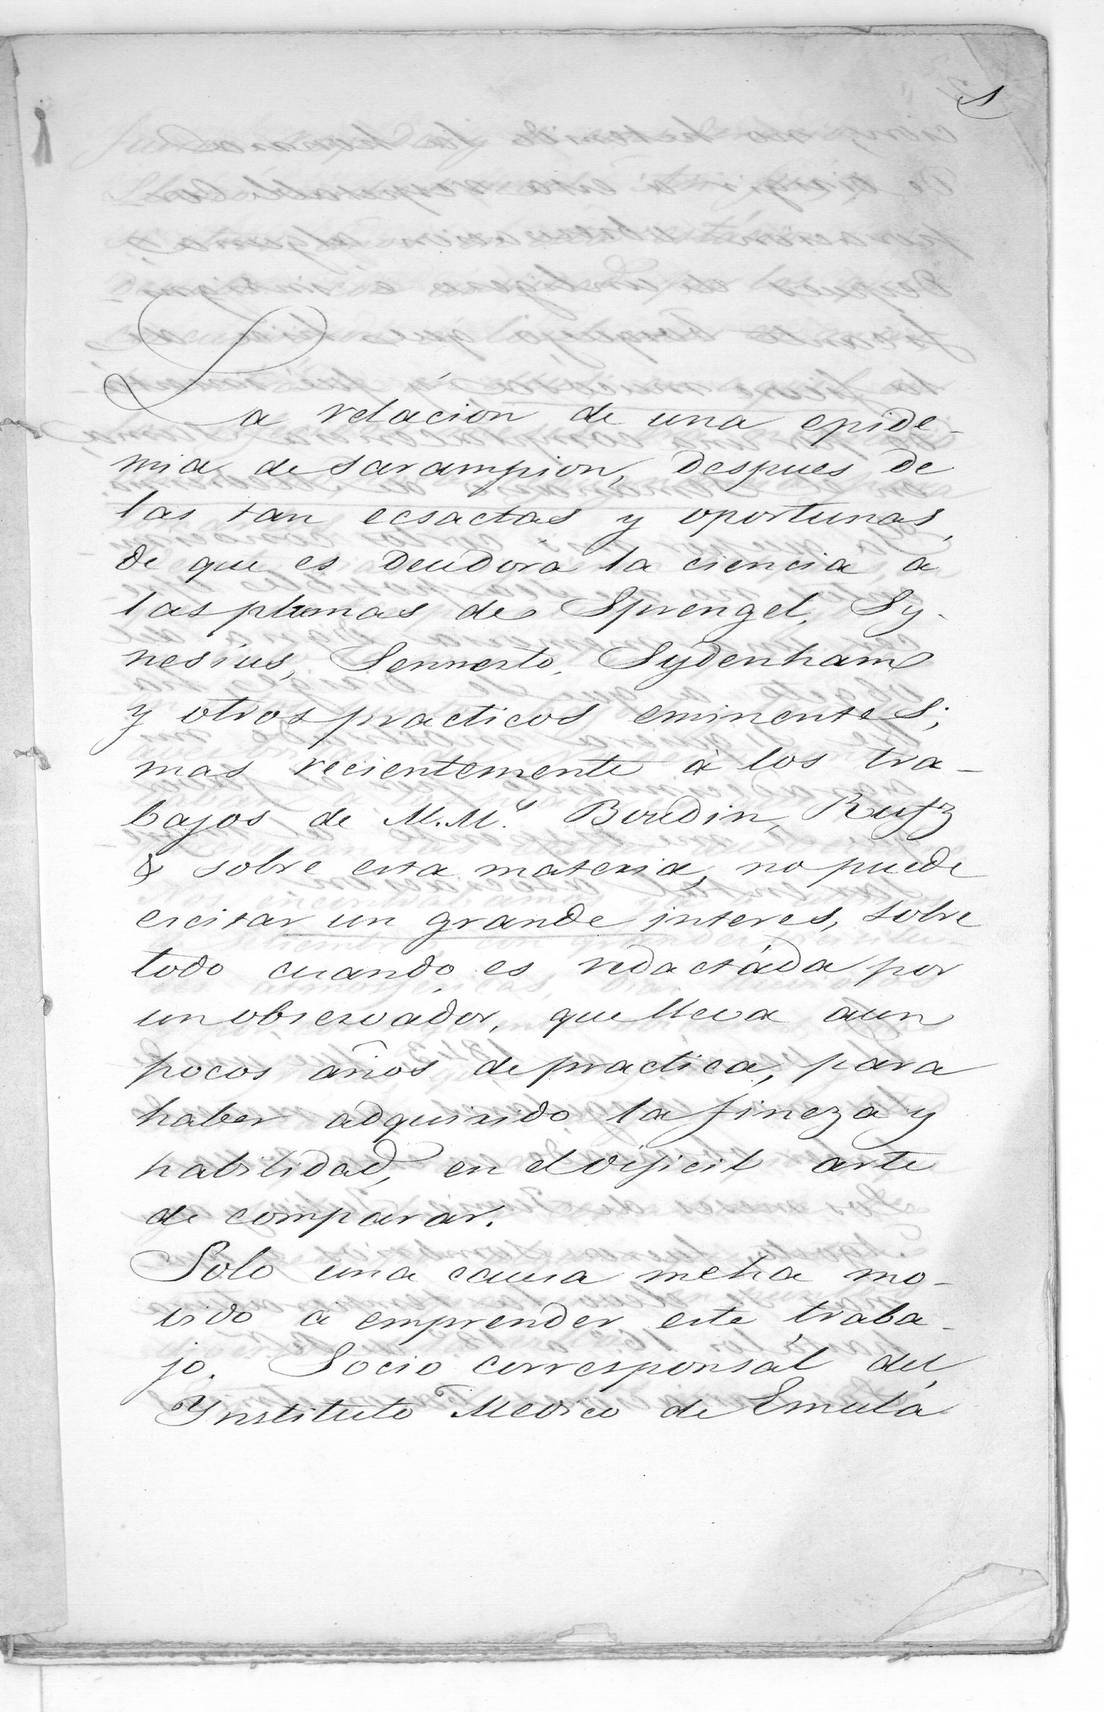 1
La relacion de una epide-
mia de sarampion, despues de
las tan ecsactas y oportunas,
de que es deudora la ciencia á
las plumas de Sprengel, Sy-
nesius, Sennerto, Sydenham
y otros practicos eminentes;
mas recientemente à los tra-
bajos de M.M.s Boudin, Rufz
& sobre esta materia, no puede
escitar un grande interes, sobre
todo cuando es redactáda por
un observador, que lleva aun
pocos años de practica, para
haber adquirido la fineza y
habilidad, en el dificil arte
de comparár.
Solo una causa me ha mo-
vido á emprender este traba-
jo. Socio corresponsál del
Instituto Medico de Emulá